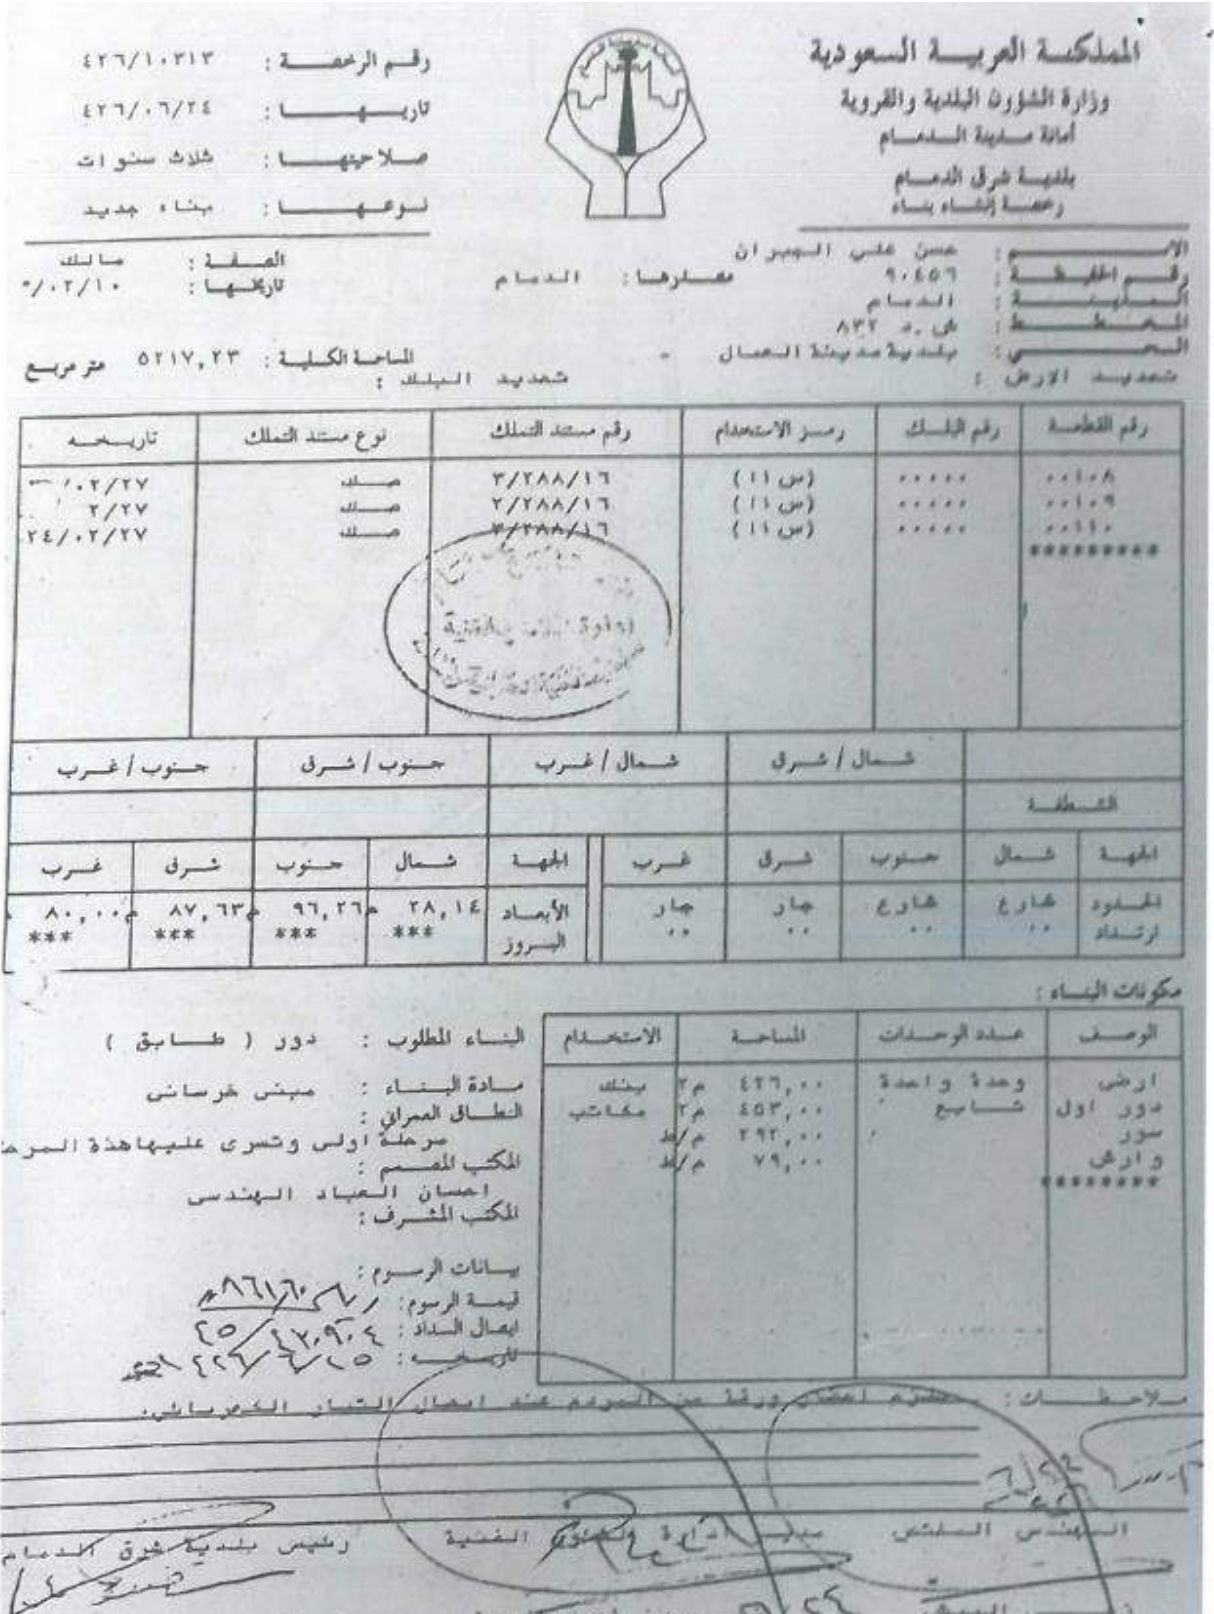 المملكة العربية السعودية
وزارة الشؤون البلدية والقروية
أمانة مدينة الدمام
بلدية شرق الدمام
رخصة إنشاء بناء
رقم الرخصة : ٤٢٦/١٠٣١٣
تاريخها : ٤٢٦/٠٦/٢٤
صلاحيتها : ثلاث سنوات
نوعها : بناء جديد
الاسم : حسن علي
الصفة : مالك
رقم الحفيظة : ٩٠٤٥٦ مصدرها : الدمام تاريخها : ٠/٠٢/١٠
المدينة : الدمام
المخطط : ش.د ٨٣٢
الحي : بلدية مدينة العمال - المساحة الكلية : ٥٢١٧,٢٣ متر مربع
تحديد الارض : تحديد البلك :
رقم القطعة رقم البلك رمز الاستخدام رقم مستند التملك نوع مستند التملك تاريخه
٠٠١٠٨ ٠٠٠٠٠ (س ١١) ٣/٢٨٨/١٦ صك ٠٢/٢٧
٠٠١٠٩ ٠٠٠٠٠ (س ١١) ٢/٢٨٨/١٦ صك ٢/٢٧
٠٠١١٠ ٠٠٠٠٠ (س ١١) ٣/٢٨٨/١٦ صك ٢٤/٠٢/٢٧
*********
شمال / شرق شمال / غرب جنوب / شرق جنوب / غرب
الشطفة
الجهة شمال جنوب شرق غرب الجهة شمال جنوب شرق غرب
الحدود شارع شارع جار جار الأبعاد ٢٨,١٤ م ٩٦,٢٦ م ٨٧,٦٣ م ٨٠,٠٠
ارتداد ٠٠ ٠٠ ٠٠ ٠٠ البروز *** *** *** ***
مكونات البناء :
الوصف عدد الوحدات المساحة الاستخدام
ارضي وحدة واحدة ٤٢٦,٠٠ م٢ بنك
دور اول تابع ٤٥٣,٠٠ م٢ مكاتب
سور ٢٩٢,٠٠ م/ط
وارش ٧٩,٠٠ م/ط
********
البناء المطلوب : دور ( طابق )
مادة البناء : مبنى خرساني
النطاق العمراني :
مرحلة اولى وتسري عليها هذة المرح
المكتب المصمم :
احسان العباد الهندسي
المكتب المشرف :
بيانات الرسوم :
قيمة الرسوم :
ايصال السداد :
تاريخه :
ملاحظات : احضار ورقة من المرور عند ايصال التيار الكهربائي.
المهندس المختص
مدير ادارة الشئون الفنية
رئيس بلدية شرق الدمام